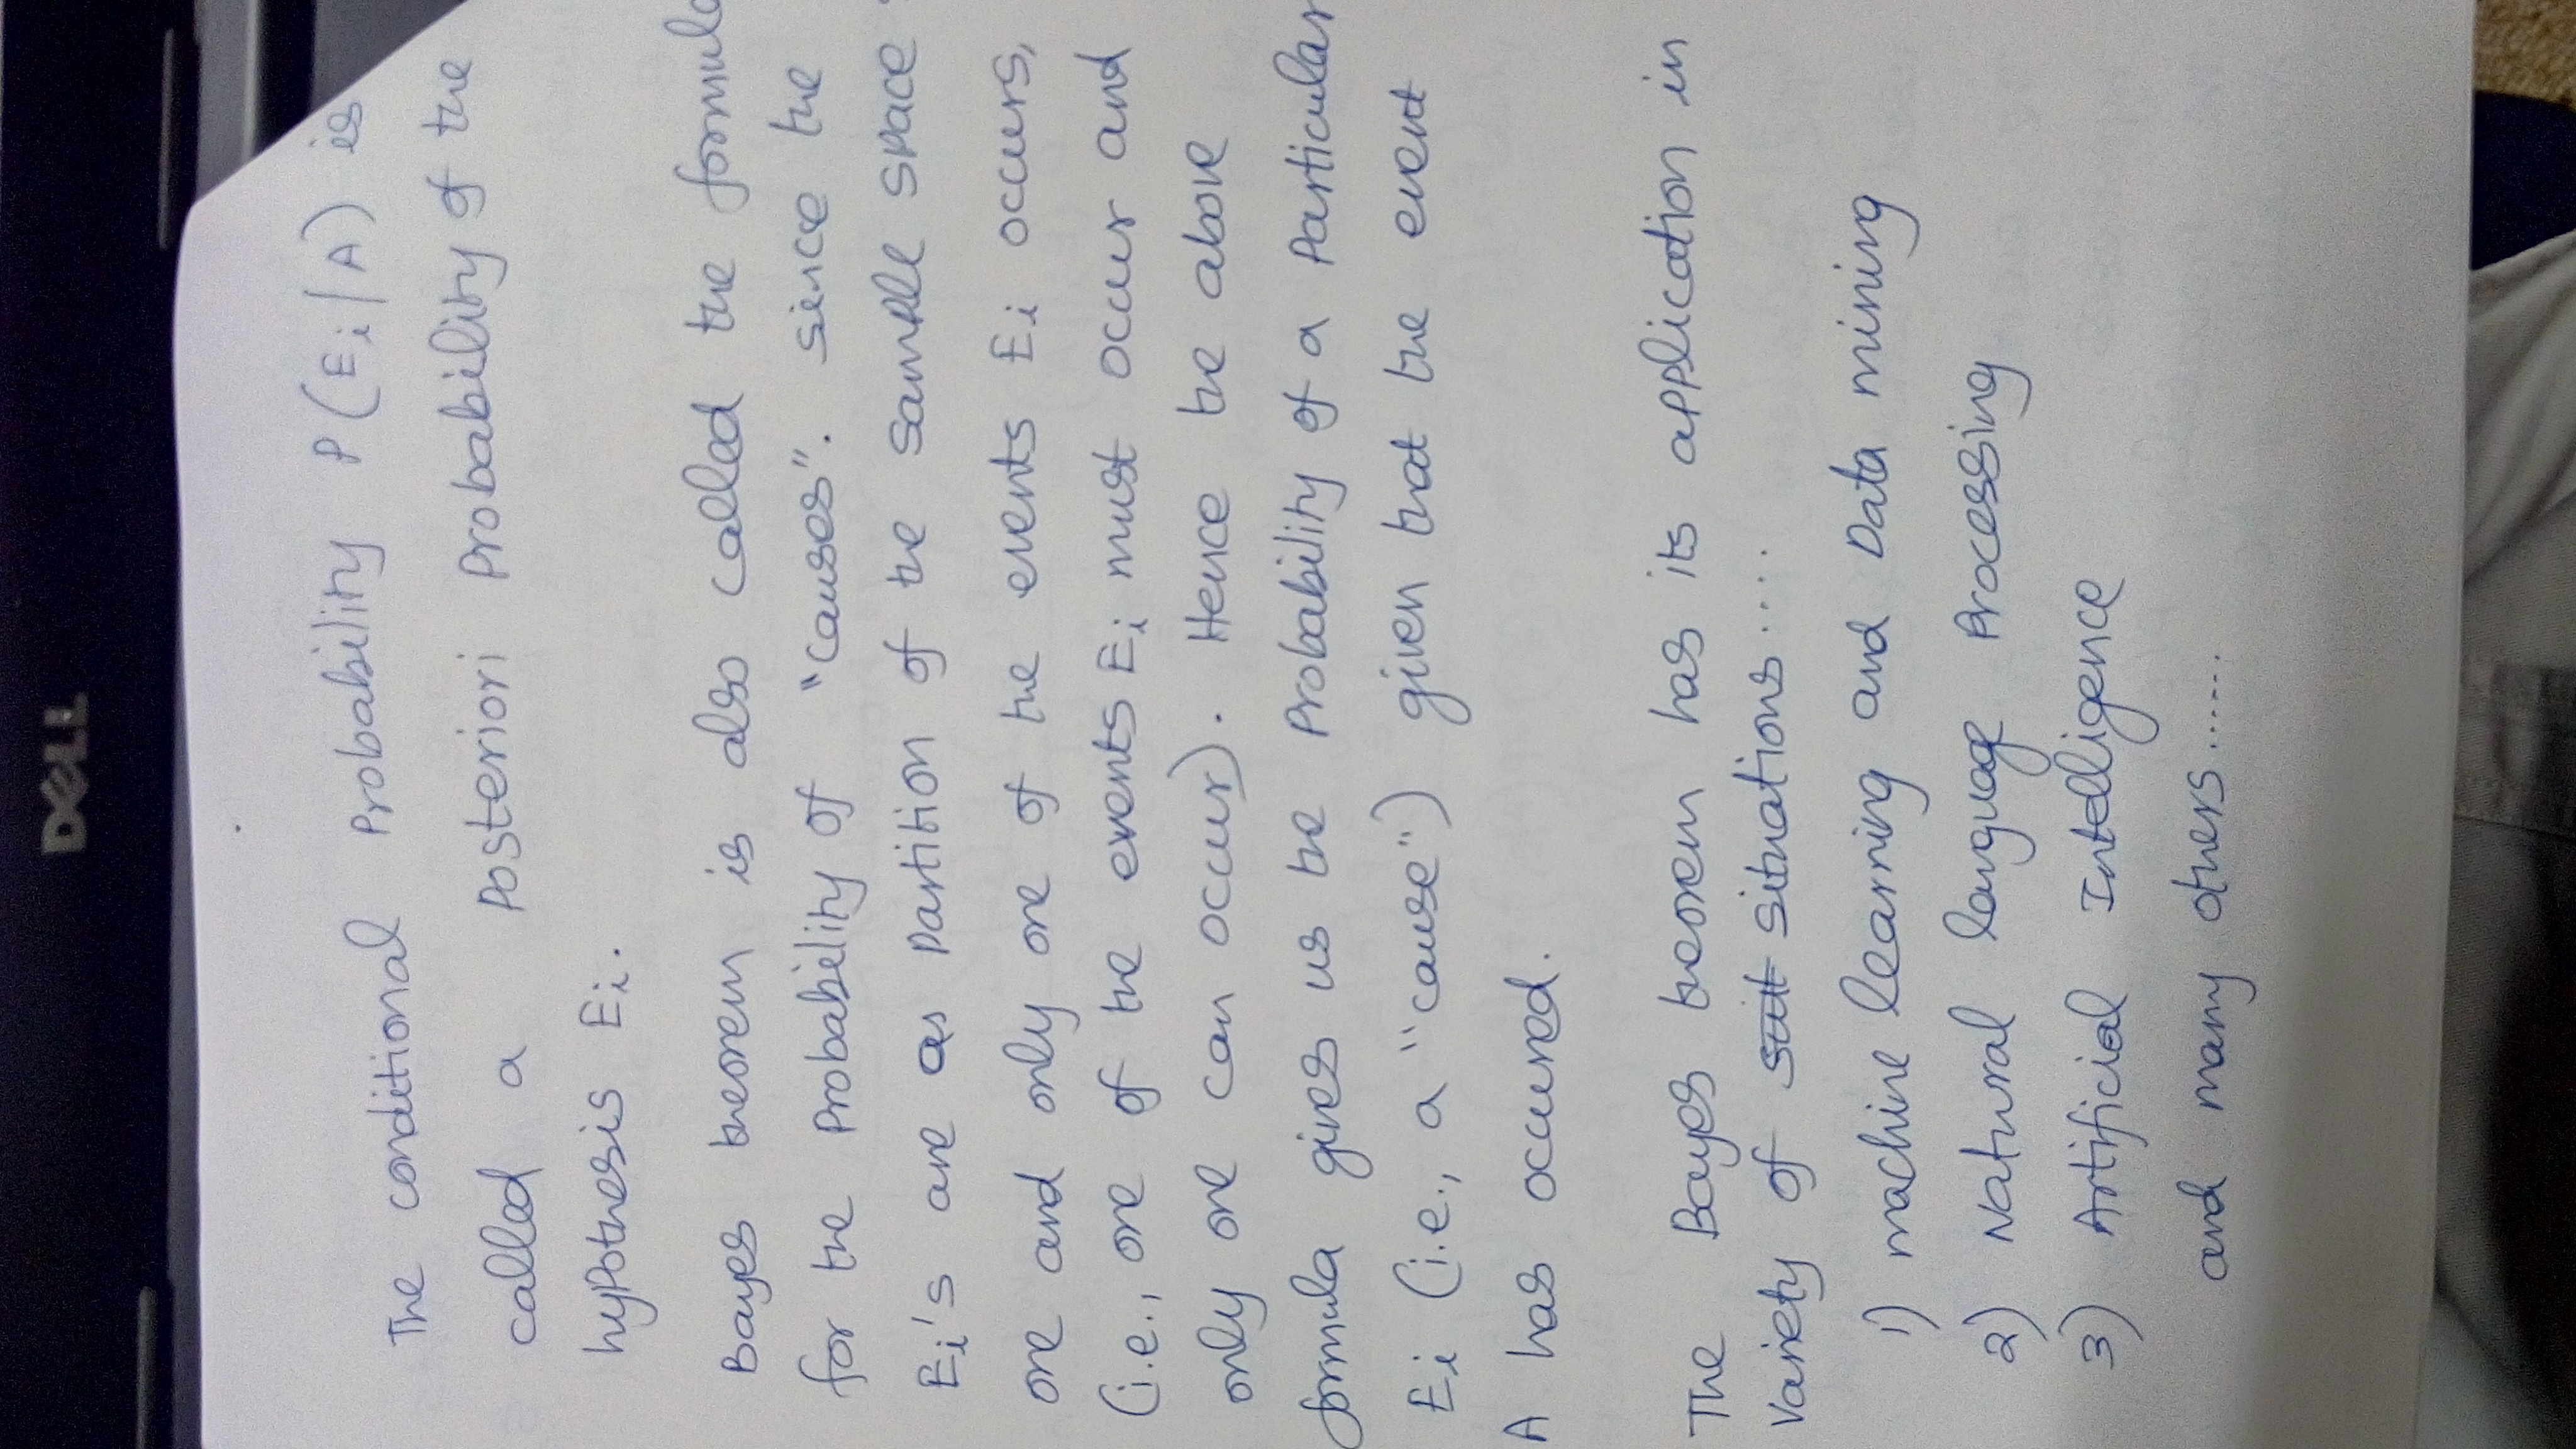 DELL
The conditional Probability P(Ei/A) is
called a Posteriori Probability of the
hypothesis Ei.
Bayes theorem is also called the formula
for the Probability of "causes". since the
Ei's are as Partition of the sample space
one and only one of the events Ei occurs,
(i.e., one of the events Ei must occur and
only one can occur). Hence the above
formula gives us the Probability of a Particular
Ei (i.e., a "cause") given that the event
A has occured.
The Bayes theorem has its application in
Variety of suit situations....
1) machine learning and Data mining
2) Natural language Processing
3) Artificial Intelligence
and many others......